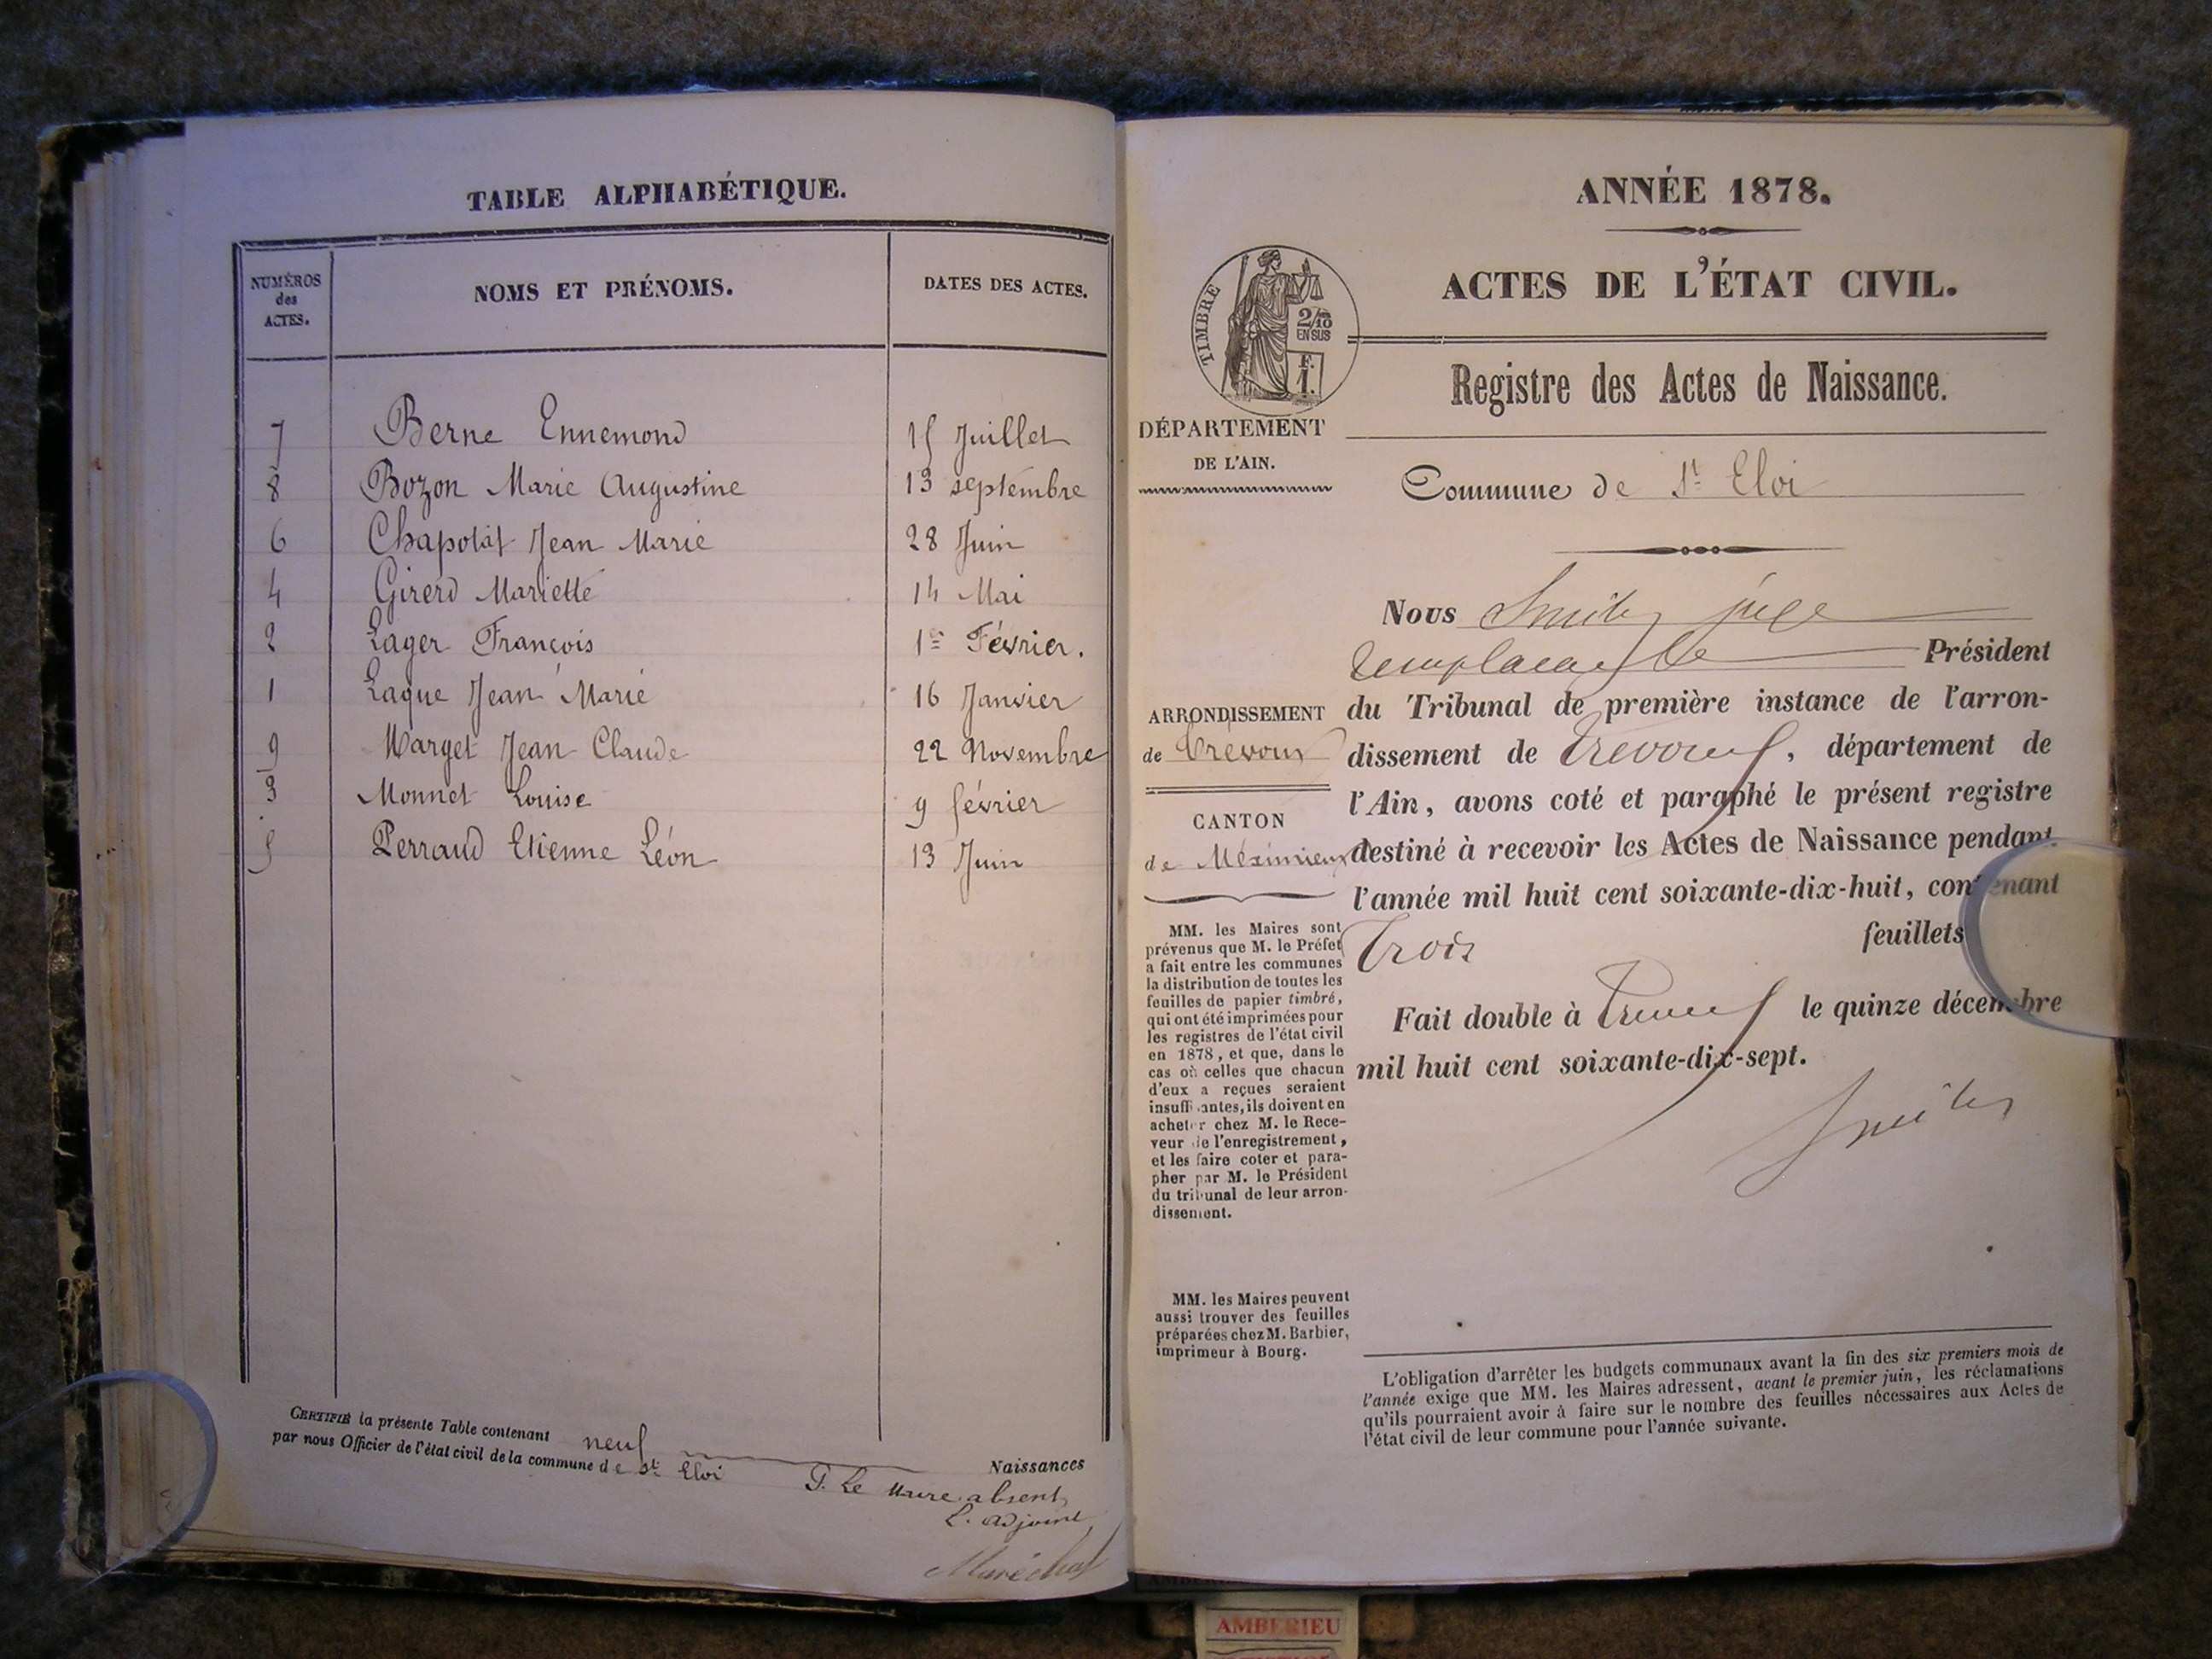 TABLE ALPHABÉTIQUE.
NUMÉROS
des
ACTES.
NOMS ET PRÉNOMS.
DATES DES ACTES.
7 Berne Ennemond 15 Juillet
8 Bozon Marie Augustine 13 septembre
6 Chapolat Jean Marie 28 Juin
4 Girerd Mariette 14 Mai
2 Lager François 1er Février.
1 Laque Jean Marie 16 Janvier
9 Marget Jean Claude 22 Novembre
3 Monnet Louise 9 février
5 Perraud Etienne Léon 13 Juin
CERTIFIÉ la présente Table contenant neuf Naissances
par nous Officier de l'état civil de la commune de St Eloi
P. Le Maire absent,
L. adjoint
Maréchal
ANNÉE 1878.
ACTES DE L'ÉTAT CIVIL.
TIMBRE
2/10
EN SUS
F.
1.
Registre des Actes de Naissance.
DÉPARTEMENT
DE L'AIN.
Commune de St Eloi
Nous Smith juge
remplaçant le Président
du Tribunal de première instance de l'arron-
dissement de Trévoux, département de
l'Ain, avons coté et paraphé le présent registre
destiné à recevoir les Actes de Naissance pendant
l'année mil huit cent soixante-dix-huit, contenant
Trois feuillets
Fait double à Trévoux le quinze décembre
mil huit cent soixante-dix-sept.
ARRONDISSEMENT
de Trévoux
CANTON
de Méximieux
MM. les Maires sont
prévenus que M. le Préfet
a fait entre les communes
la distribution de toutes les
feuilles de papier timbré,
qui ont été imprimées pour
les registres de l'état civil
en 1878, et que, dans le
cas où celles que chacun
d'eux a reçues seraient
insuffisantes, ils doivent en
acheter chez M. le Rece-
veur de l'enregistrement,
et les faire coter et para-
pher par M. le Président
du tribunal de leur arron-
dissement.
MM. les Maires peuvent
aussi trouver des feuilles
préparées chez M. Barbier,
imprimeur à Bourg.
L'obligation d'arrêter les budgets communaux avant la fin des six premiers mois de
l'année exige que MM. les Maires adressent, avant le premier juin, les réclamations
qu'ils pourraient avoir à faire sur le nombre des feuilles nécessaires aux Actes de
l'état civil de leur commune pour l'année suivante.
AMBERIEU